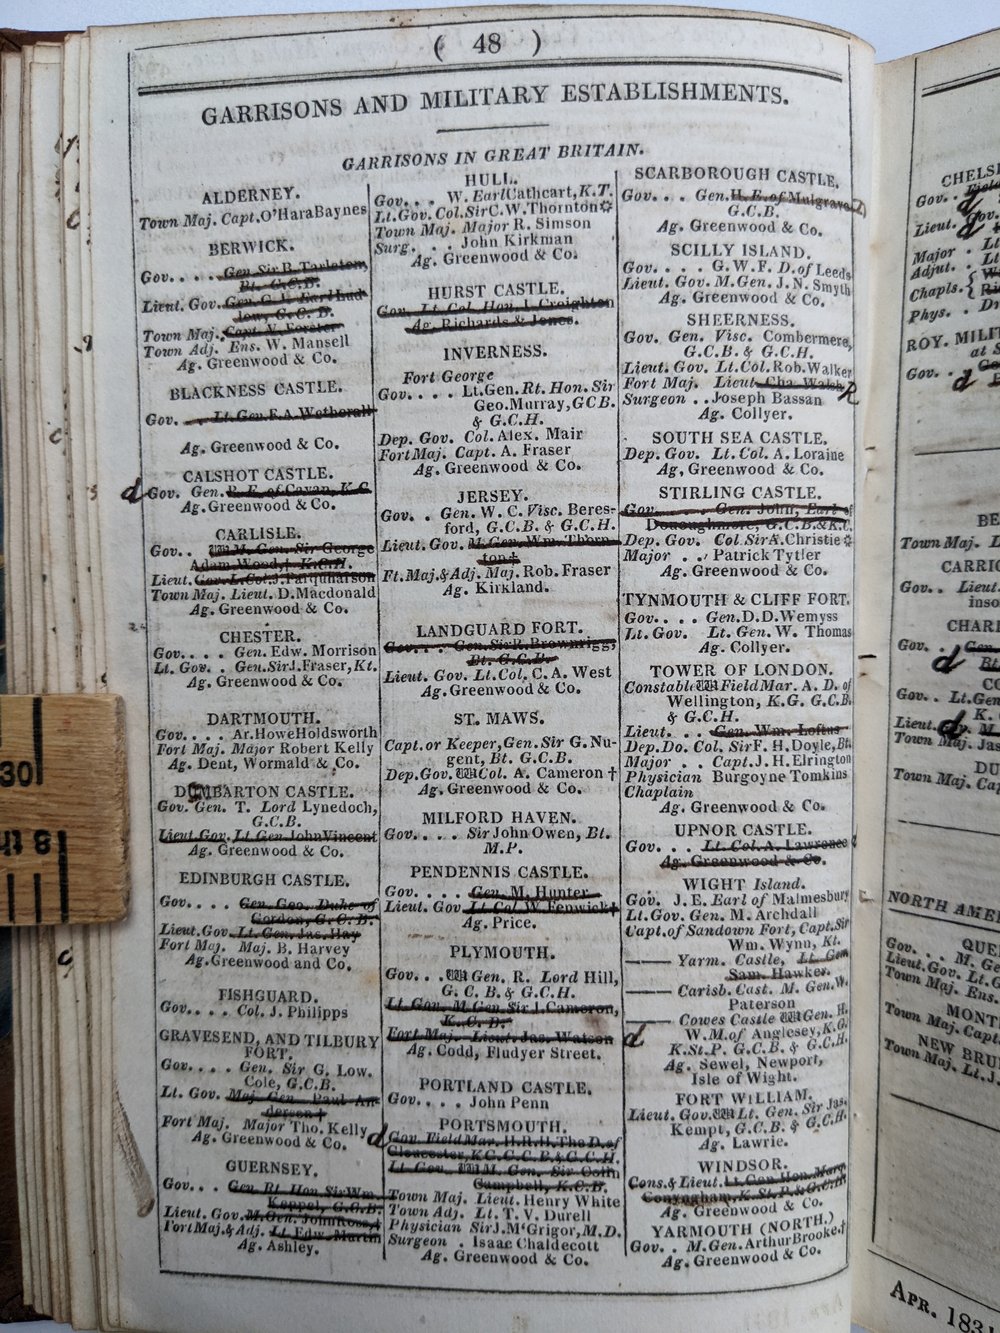 ( 48 )
GARRISONS AND MILITARY ESTABLISHMENTS.
GARRISONS IN GREAT BRITAIN.
ALDERNEY.
Town Maj. Capt. O'HaraBaynes
BERWICK.
Gov. . . . . Gen. Sir B. Tarleton,
Bt. G.C.B.
Lieut. Gov. Gen. G. J. Earl Lud-
low, G. C. B.
Town Maj. Capt. N. Forster
Town Adj. Ens. W. Mansell
Ag. Greenwood & Co.
BLACKNESS CASTLE.
Gov. . . . Lt. Gen. F.A. Wetherall
Ag. Greenwood & Co.
CALSHOT CASTLE.
d Gov. Gen. R. E. of Cavan, K.C.
Ag. Greenwood & Co.
CARLISLE.
Gov. . . M. Gen. Sir George
Adam Wood,† K.C.H.
Lieut. Gov. L. Col. J. Farquharson
Town Maj. Lieut. D. Macdonald
Ag. Greenwood & Co.
CHESTER.
Gov. . . . . Gen. Edw. Morrison
Lt. Gov. . . Gen. Sir J. Fraser, Kt.
Ag. Greenwood & Co.
DARTMOUTH.
Gov. . . . . Ar. Howe Holdsworth
Fort Maj. Major Robert Kelly
Ag. Dent, Wormald & Co.
DUMBARTON CASTLE.
Gov. Gen. T. Lord Lynedoch,
G.C.B.
Lieut. Gov. Lt. Gen. John Vincent
Ag. Greenwood & Co.
EDINBURGH CASTLE.
Gov. . . . . Gen. Geo. Duke of
Gordon, G. C. B.
Lieut. Gov. Lt. Gen. Jas. Hay
Fort Maj. Maj. B. Harvey
Ag. Greenwood and Co.
FISHGUARD.
Gov. . . . . Col. J. Philipps
GRAVESEND, AND TILBURY
FORT.
Gov. . . . . Gen. Sir G. Low.
Cole, G.C.B.
Lt. Gov. Maj. Gen. Paul An-
derson †
Fort Maj. Major Tho. Kelly
Ag. Greenwood & Co.
GUERNSEY.
Gov. . . Gen. Rt. Hon. Sir Wm.
Keppel, G.C.B.
Lieut. Gov. M. Gen. John Ross, †
Fort Maj. & Adj. Lt. Edw. Martin
Ag. Ashley.
HULL.
Gov. . . W. Earl Cathcart, K.T.
Lt. Gov. Col. Sir C. W. Thornton✡
Town Maj. Major R. Simson
Surg. . . . John Kirkman
Ag. Greenwood & Co.
HURST CASTLE.
Gov. Lt. Col. Hon. J. Creighton
Ag. Richards & Jones.
INVERNESS.
Fort George
Gov. . . . . Lt. Gen. Rt. Hon. Sir
Geo. Murray, GCB.
& G.C.H.
Dep. Gov. Col. Alex. Mair
Fort Maj. Capt. A. Fraser
Ag. Greenwood & Co.
JERSEY.
Gov. . . Gen. W. C. Visc. Beres-
ford, G.C.B. & G.C.H.
Lieut. Gov. M. Gen. Wm. Thorn-
ton‡
Ft. Maj. & Adj. Maj. Rob. Fraser
Ag. Kirkland.
LANDGUARD FORT.
Gov. . . . Gen. Sir R. Brownrigg,
Bt. G.C.B.
Lieut. Gov. Lt. Col. C. A. West
Ag. Greenwood & Co.
ST. MAWS.
Capt. or Keeper, Gen. Sir G. Nu-
gent, Bt. G.C.B.
Dep. Gov. Col. A. Cameron †
Ag. Greenwood & Co.
MILFORD HAVEN.
Gov. . . . . Sir John Owen, Bt.
M.P.
PENDENNIS CASTLE.
Gov. . . . . Gen. M. Hunter
Lieut. Gov. Lt. Col. W. Fenwick†
Ag. Price.
PLYMOUTH.
Gov. . . Gen. R. Lord Hill,
G. C. B. & G.C.H.
Lt. Gov. M. Gen. Sir J. Cameron,
K. C. B.
Fort Maj. Lieut. Jas. Watson
Ag. Codd, Fludyer Street.
PORTLAND CASTLE.
Gov. . . . . John Penn
PORTSMOUTH.
d Gov. Field Mar. H.R.H. The D. of
Gloucester, KG. G.C.B. & G.C.H.
Lt. Gov. M. Gen. Sir Colin
Campbell, K.C.B.
Town Maj. Lieut. Henry White
Town Adj. Lt. T. V. Durell
Physician Sir J. McGrigor, M.D.
Surgeon . Isaac Chaldecott
Ag. Greenwood & Co.
SCARBOROUGH CASTLE.
Gov. . . Gen. H. E. of Mulgrave
G.C.B.
Ag. Greenwood & Co.
SCILLY ISLAND.
Gov. . . . . G. W. F. D. of Leeds
Lieut. Gov. M. Gen. J. N. Smyth
Ag. Greenwood & Co.
SHEERNESS.
Gov. Gen. Visc. Combermere,
G.C.B. & G.C.H.
Lieut. Gov. Lt. Col. Rob. Walker
Fort Maj. Lieut. Cha. Walsh R
Surgeon . . Joseph Bassan
Ag. Collyer.
SOUTH SEA CASTLE.
Dep. Gov. Lt. Col. A. Loraine
Ag, Greenwood & Co.
STIRLING CASTLE.
Gov. . . . . Gen. John, Earl of
Donoughmore, G.C.B. & K.C.
Dep. Gov. Col. Sir A. Christie✡
Major . . . Patrick Tytler
Ag. Greenwood & Co.
TYNMOUTH & CLIFF FORT.
Gov. . . . . Gen. D. D. Wemyss
Lt. Gov. Lt. Gen. W. Thomas
Ag. Collyer.
TOWER OF LONDON.
Constable Field Mar. A. D. of
Wellington, K.G. G.C.B.
& G.C.H.
Lieut. . . . Gen. Wm. Loftus
Dep. Do. Col. Sir F. H. Doyle, Bt.
Major . . Capt. J. H. Elrington
Physician Burgoyne Tomkins
Chaplain
Ag. Greenwood & Co.
UPNOR CASTLE.
Gov. . . . Lt. Col. A. Lawrence
Ag. Greenwood & Co.
WIGHT Island.
Gov. J. E. Earl of Malmesbury
Lt. Gov. Gen. M. Archdall
Capt. of Sandown Fort, Capt. Sir
Wm. Wynn, Kt.
—— Yarm. Castle, Lt. Gen.
Sam. Hawker.
—— Carisb. Cast. M. Gen. W.
Paterson
—— Cowes Castle Gen. H.
d W. M. of Anglesey, K.G.
K.St.P. G.C.B. & G.C.H.
Ag. Sewel, Newport,
Isle of Wight.
FORT WILLIAM.
Lieut. Gov. Lt. Gen. Sir Jas.
Kempt, G.C.B. & G.C.H.
Ag. Lawrie.
WINDSOR.
Cons. & Lieut. Lt. Gen. Hon. Marq.
Conyngham, K.St.P. & G.C.H.
Ag. Greenwood & Co.
YARMOUTH (NORTH.)
Gov. . . M. Gen. Arthur Brooke, †
Ag. Greenwood & Co.
CHELS
Gov. .
d
Lieut. Gov.
d
Major . Lt
Adjut. . Lt
Chapls. {
Phys. . D
ROY. MILI
at S
Gov. . .
d
BE
Town Maj. L
CARRIC
Gov. . Lieut.
inso
CHARL
Gov. . Gen.
d Bt
CO
Gov. . Lt. Gen
K.
Lieut. Gov. M.
d
Town Maj. Jas
DU
Town Maj. Cap
NORTH AME
QUE
Gov. . . M. Ge
Lieut. Gov. Lt. G
Town Maj. Ens.
MONT
Town Maj. Capt.
NEW BRU
Town Maj. Lt. J.
APR. 1831
30
8 th